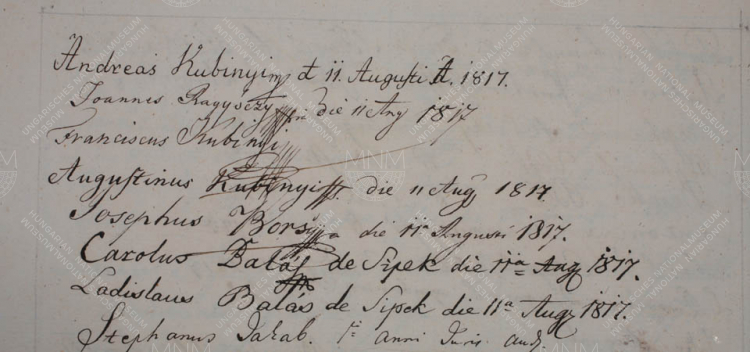 Andreas Kubinyi d 11. Augusti A. 1817.
Joannes Ragyóczy die 11 Aug 1817
Franciscus Kubinyi
Augustinus Kubinyi die 11 Aug 1817.
Josephus Borsi die 11a Augusti 1817.
Carolus Balás de Sipek die 11a Aug 1817.
Ladislaus Balás de Sipek die 11a Aug 1817.
Stephanus Jakab. 1i anni Juris aud.
HUNGARIAN NATIONAL MUSEUM
MNM